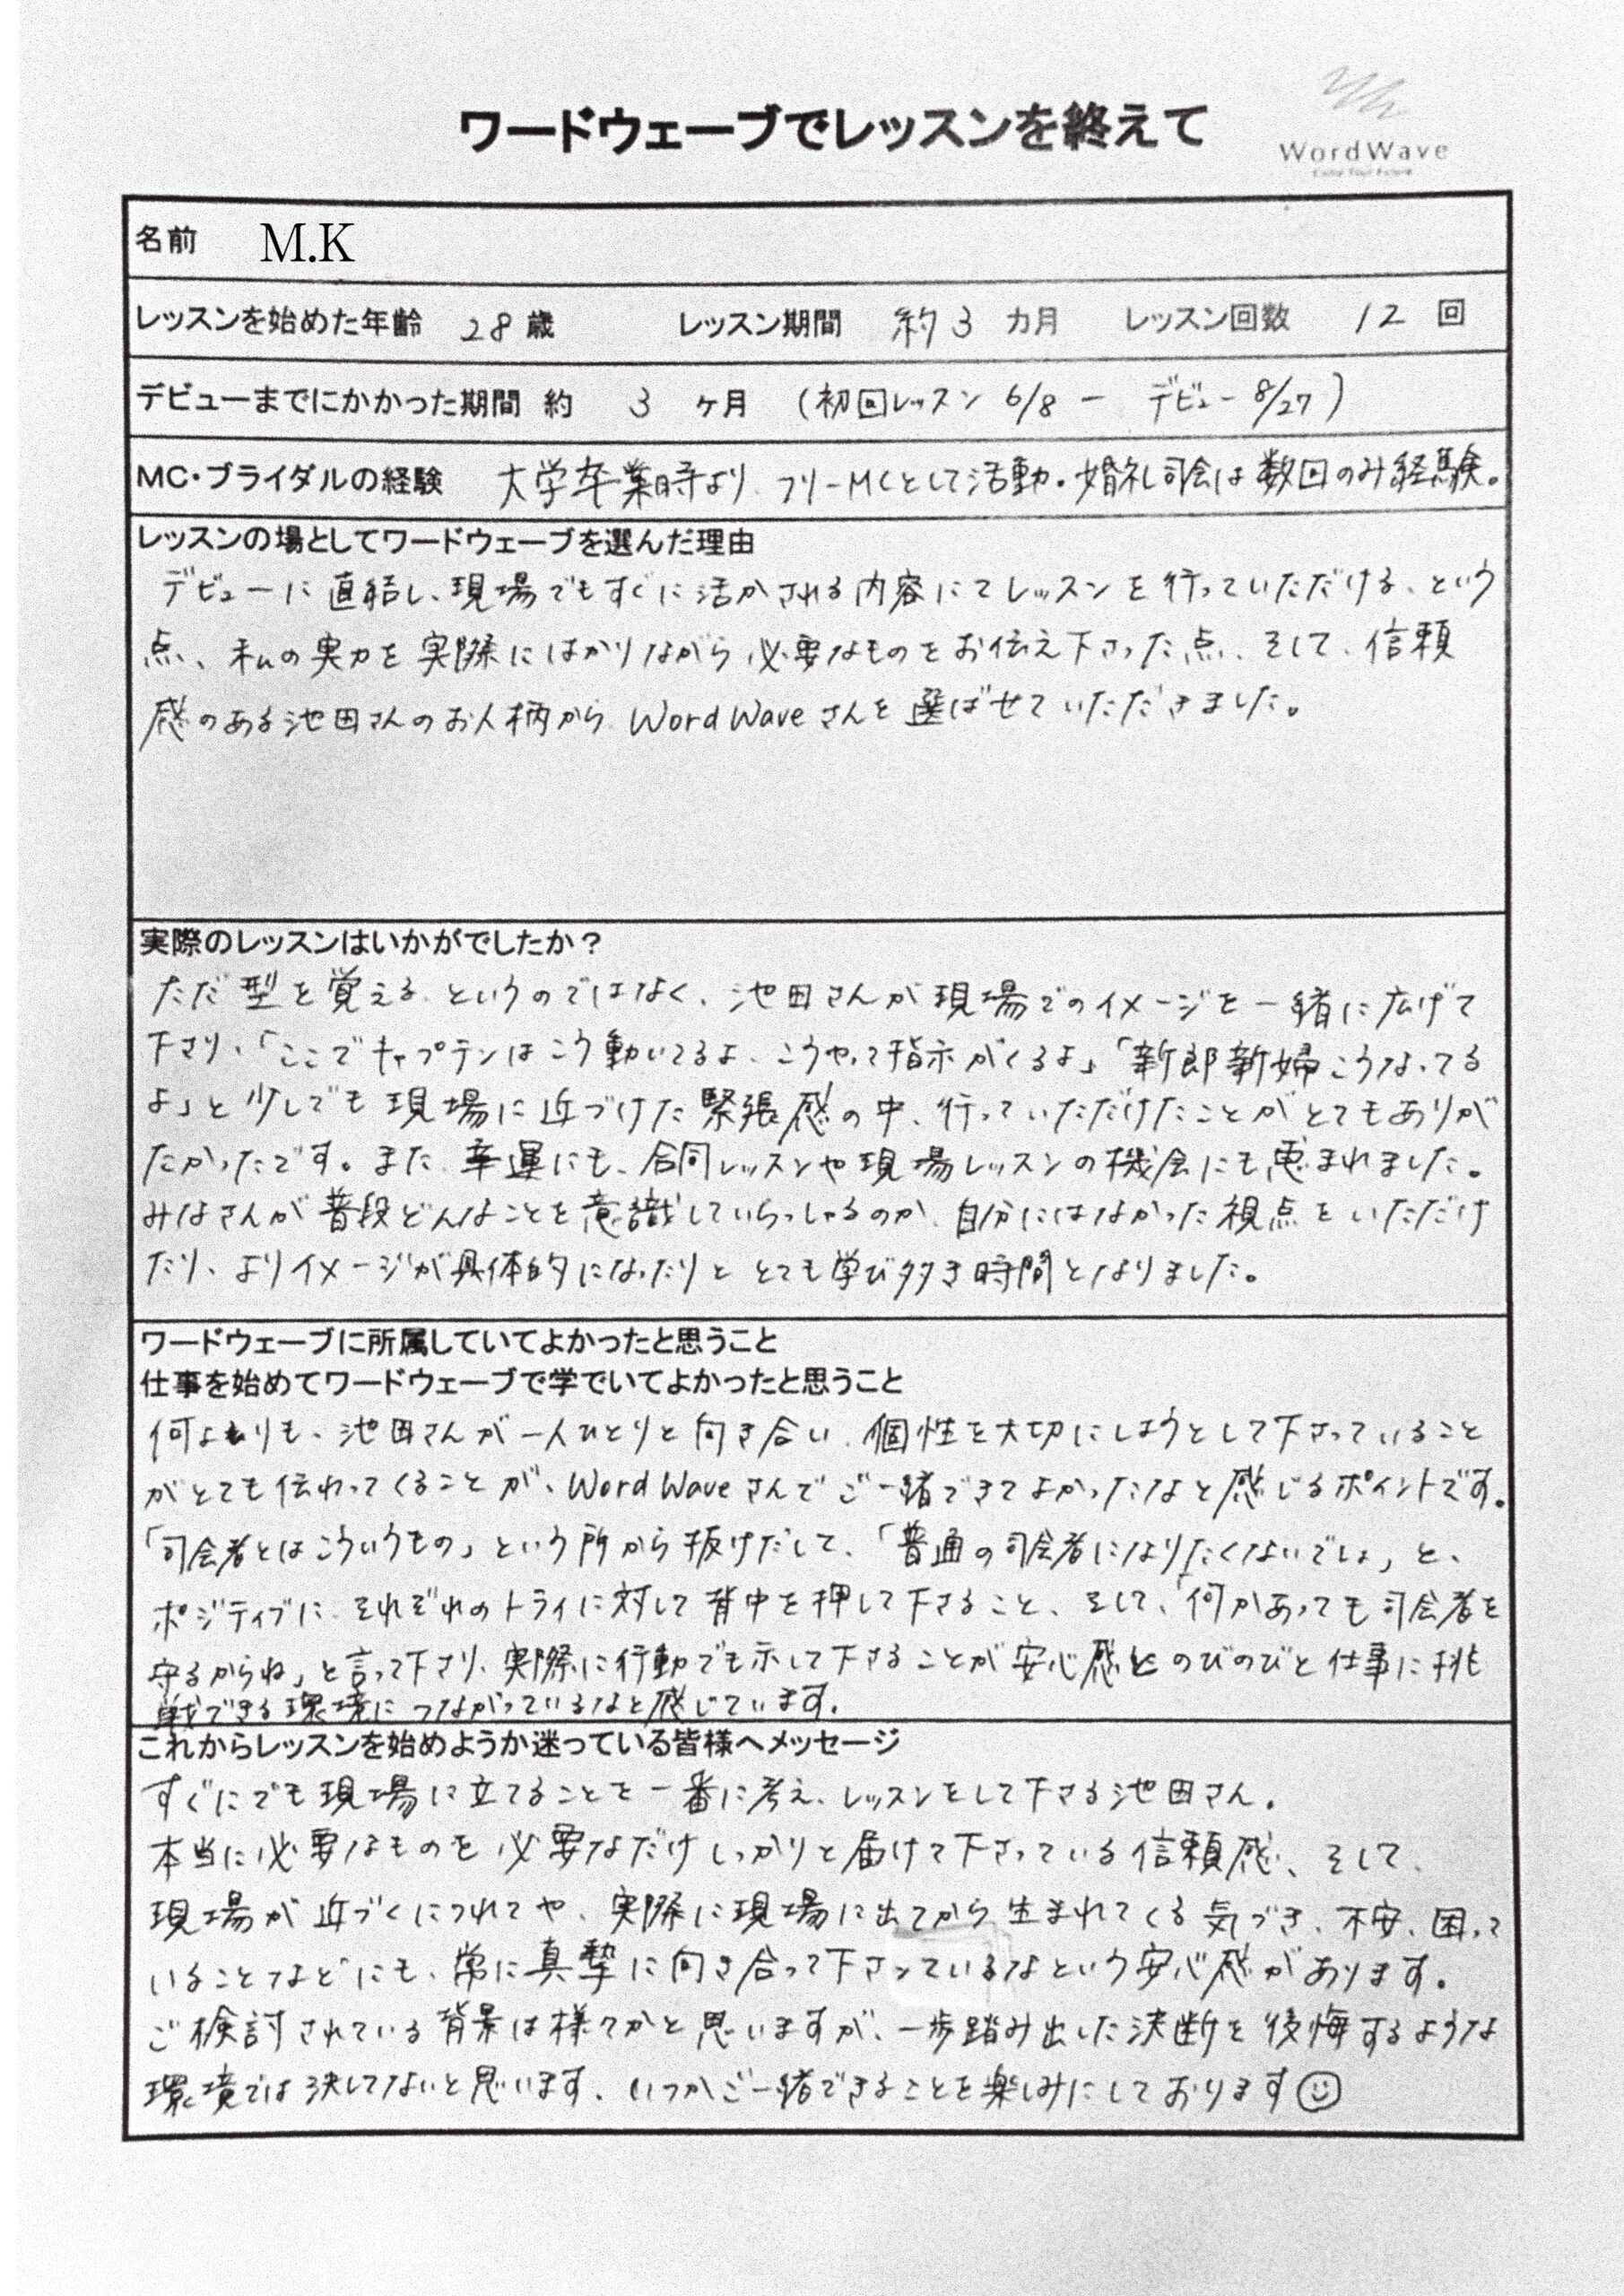 ワードウェーブでレッスンを終えて
WordWave
名前 M.K
レッスンを始めた年齢 28 歳 レッスン期間 約3 カ月 レッスン回数 12 回
デビューまでにかかった期間 約 3 ヶ月 (初回レッスン 6/8 ー デビュー 8/27)
MC・ブライダルの経験 大学卒業時より、フリーMCとして活動。婚礼司会は数回のみ経験。
レッスンの場としてワードウェーブを選んだ理由
デビューに直結し、現場でもすぐに活かされる内容にてレッスンを行っていただける、という
点、私の実力を実際にはかりながら必要なものをお伝え下さった点、そして、信頼
感のある池田さんのお人柄から WordWaveさんを選ばせていただきました。
実際のレッスンはいかがでしたか？
ただ型を覚える、というのではなく、池田さんが現場でのイメージを一緒に広げて
下さり、「ここでキャプテンはこう動いてるよ、こうやって指示がくるよ」「新郎新婦こうなってる
よ」と少しでも現場に近づけた緊張感の中、行っていただけたことがとてもありが
たかったです。また、幸運にも、合同レッスンや現場レッスンの機会にも恵まれました。
みなさんが普段どんなことを意識していらっしゃるのか、自分にはなかった視点をいただけ
たり、よりイメージが具体的になったりと とても学び多き時間となりました。
ワードウェーブに所属していてよかったと思うこと
仕事を始めてワードウェーブで学でいてよかったと思うこと
何よりも、池田さんが一人ひとりと向き合い、個性を大切にしようとして下さっていること
がとても伝わってくることが、WordWaveさんでご一緒できてよかったなと感じるポイントです。
「司会者とはこういうもの」という所から抜けだして、「普通の司会者になりたくないでしょ」と、
ポジティブに、それぞれのトライに対して背中を押して下さること、そして、「何かあっても司会者を
守るからね」と言って下さり、実際に行動でも示して下さることが安心感とのびのびと仕事に挑
戦できる環境につながっているなと感じています。
これからレッスンを始めようか迷っている皆様へメッセージ
すぐにでも現場に立てることを一番に考え、レッスンをして下さる池田さん。
本当に必要なものを必要なだけしっかりと届けて下さっている信頼感、そして、
現場が近づくにつれてや、実際に現場に出てから生まれてくる気づき、不安、困って
いることなどにも、常に真摯に向き合って下さっているなという安心感があります。
ご検討されている背景は様々かと思いますが、一歩踏み出した決断を後悔するような
環境では決してないと思います。いつかご一緒できることを楽しみにしております☺